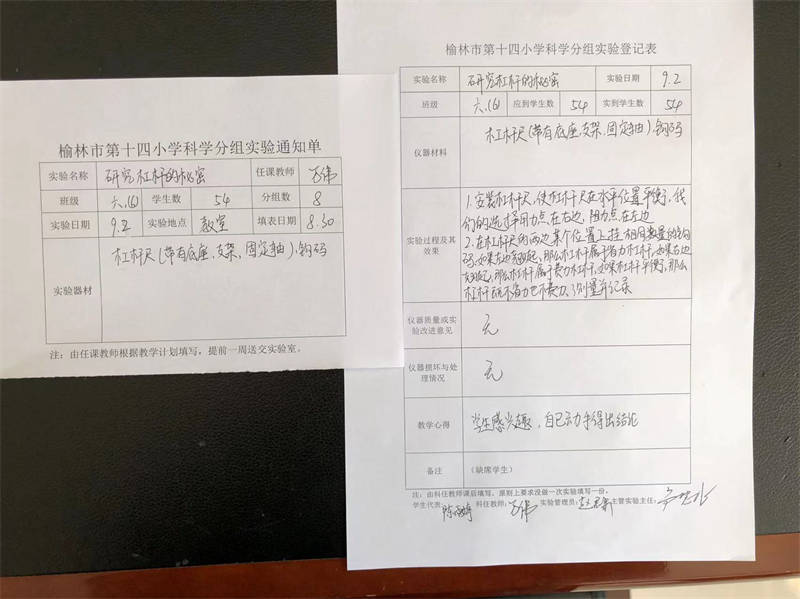 榆林市第十四小学科学分组实验通知单
实验名称 研究杠杆的秘密 任课教师
班级 六.(6) 学生数 54 分组数 8
实验日期 9.2 实验地点 教室 填表日期 8.30
实验器材 杠杆尺(带有底座、支架、固定轴)、钩码
注:由任课教师根据教学计划填写,提前一周送交实验室。
榆林市第十四小学科学分组实验登记表
实验名称 研究杠杆的秘密 实验日期 9.2
班级 六.(6) 应到学生数 54 实到学生数 54
仪器材料 杠杆尺(带有底座、支架、固定轴)、钩码
实验过程及其效果
1.安装杠杆尺,使杠杆尺在水平位置平衡,我
们的选择用力点在右边,阻力点在左边
2.在杠杆尺的两边某个位置上挂相同数量的钩
码,如果左边翘起,那么杠杆属于省力杠杆,如果右边
翘起,那么杠杆属于费力杠杆,如果杠杆平衡,那么
杠杆既不省力也不费力、测量并记录
仪器质量或实
验改进意见 无
仪器损坏与处
理情况 无
教学心得 学生感兴趣,自己动手得出结论
备注 (缺席学生)
注:由科任教师课后填写,原则上要求没做一次实验填写一份。
学生代表: 科任教师: 实验管理员: 主管实验主任: